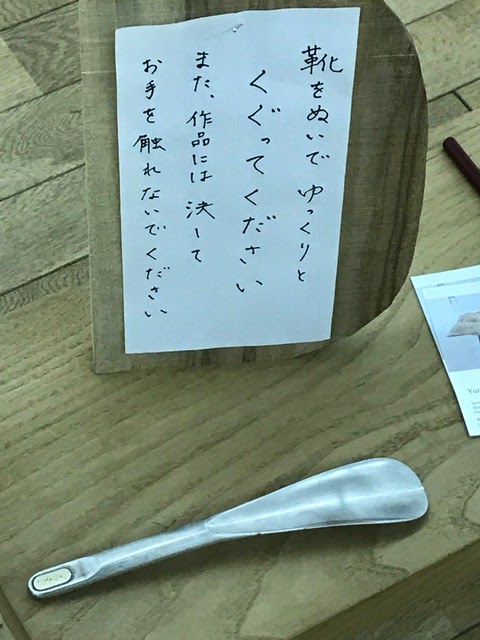 靴をぬいでゆっくりと
くぐってください
また、作品には決して
お手を触れないでください